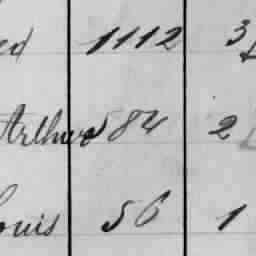 ed 1112 3
Arthur 584 2
ouis 56 1